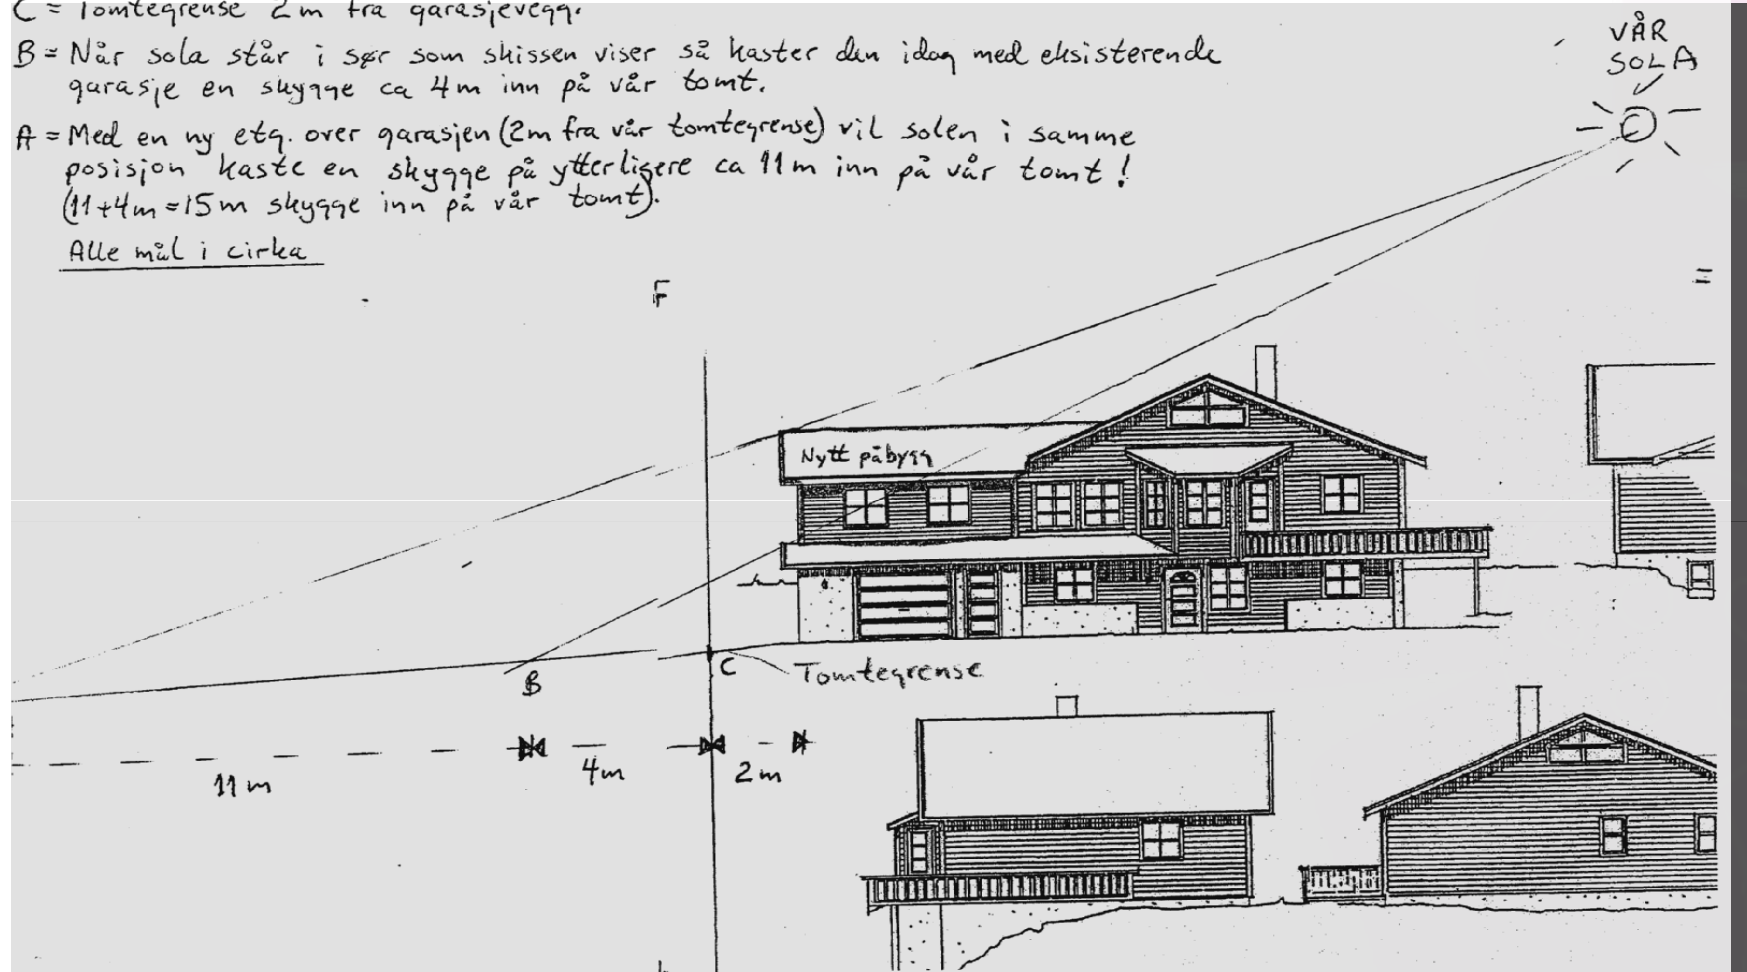 C = Tomtegrense 2m fra garasjevegg.
B = Når sola står i sør som skissen viser så kaster den idag med eksisterende
garasje en skygge ca 4m inn på vår tomt.
A = Med en ny etg. over garasjen (2m fra vår tomtegrense) vil solen i samme
posisjon kaste en skygge på ytterligere ca 11m inn på vår tomt!
(11+4m=15m skygge inn på vår tomt).
Alle mål i cirka
VÅR
SOLA
F
=
Nytt påbygg
B
C
Tomtegrense
11m
4m
2m